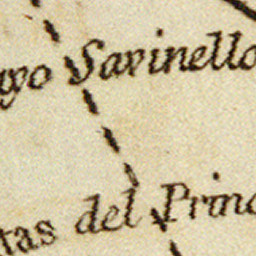 go Savinello
tas del Princ